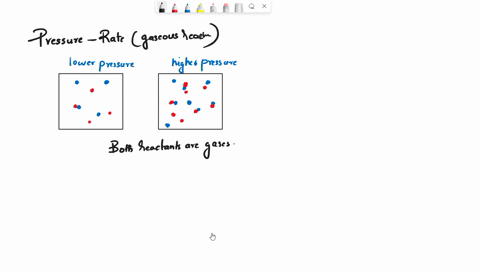 Pressure - Rate (gaseous reacn)
lower pressure higher pressure
Both reactants are gases.